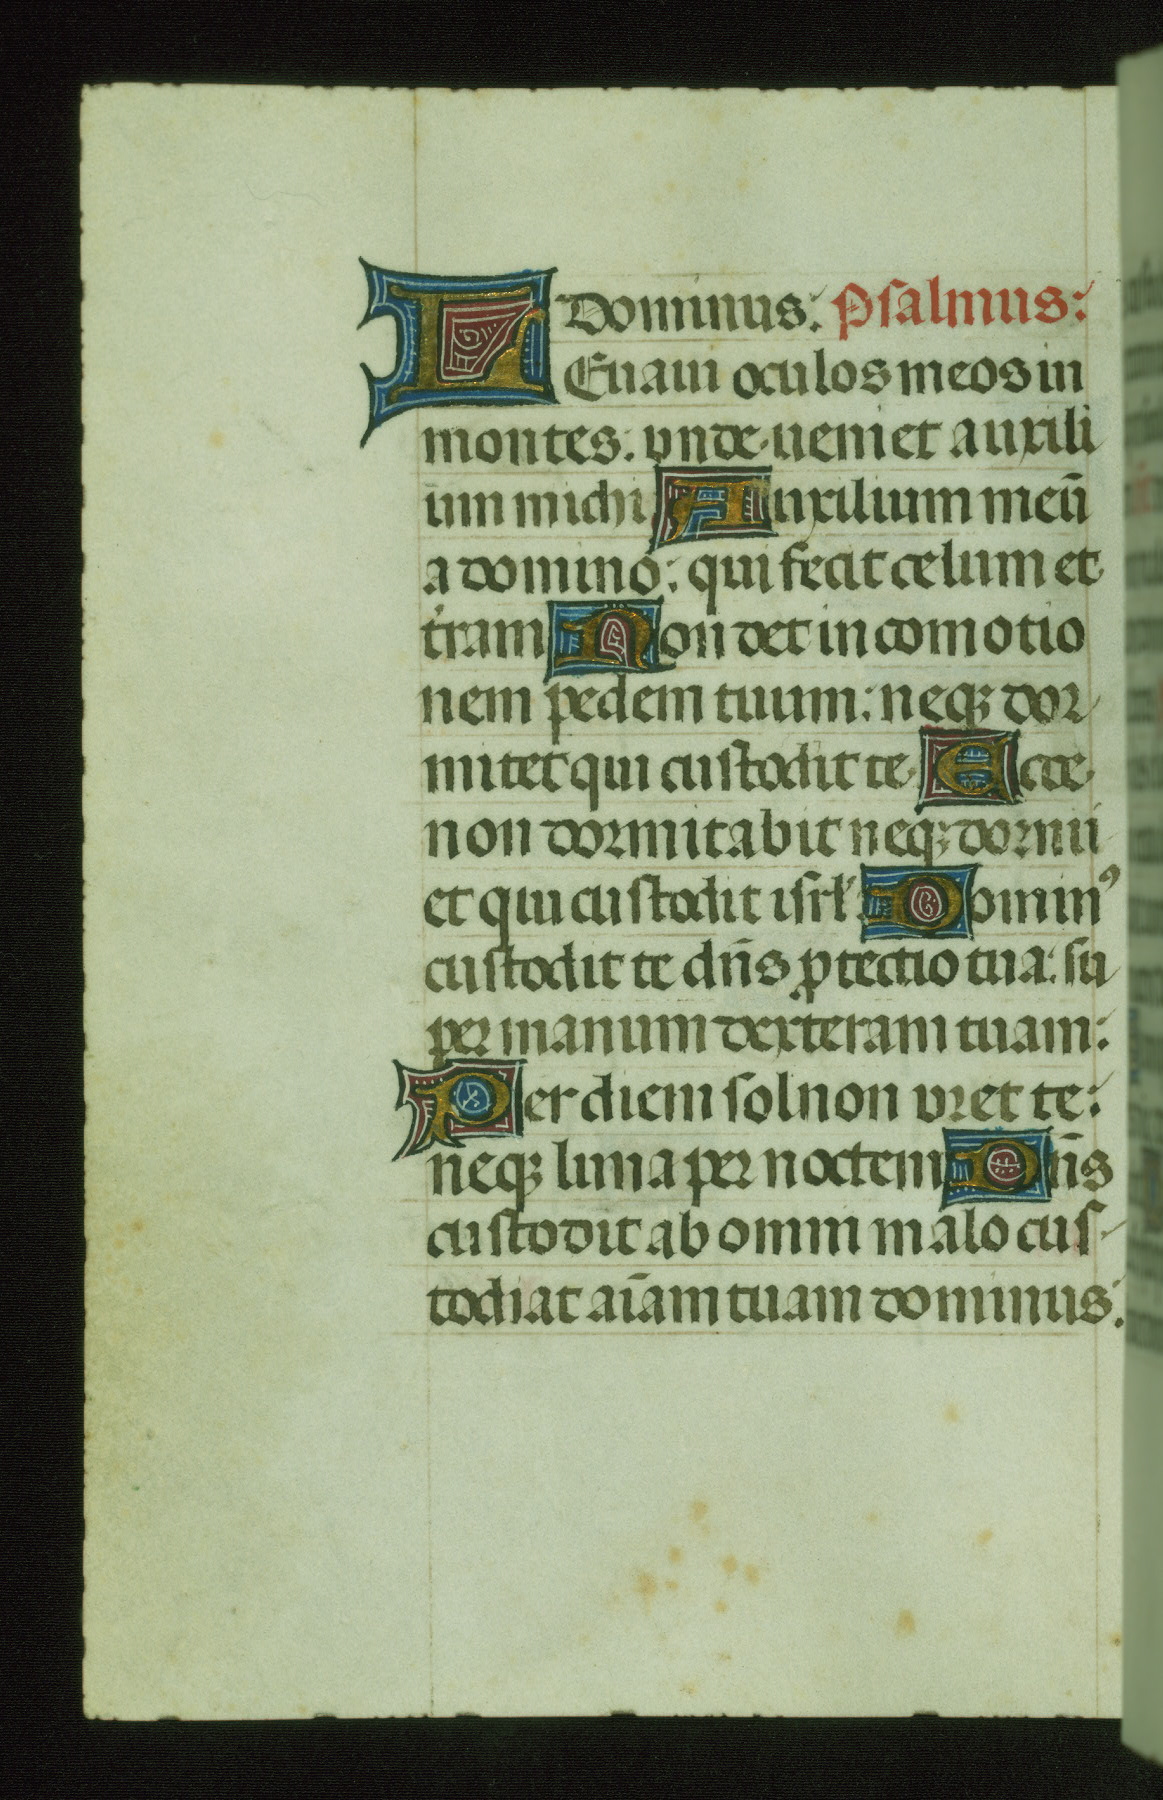 Dominus: Psalmus:
LEuaui oculos meos in
montes: vnde ueniet auxili
um michi Auxilium meū
a domino: qui fecit celum et
t̓ram Non det in comotio
nem pedem tuum: neqꝫ dor
mitet qui custodit te Ecce
non dormitabit neqꝫ dormi
et qui custodit isrl̓ Dominꝰ
custodit te dn̄s ꝓtectio tua: su
per manum dexteram tuam:
Per diem sol non vret te:
neqꝫ luna per noctem Dn̄s
custodit ab omni malo cus
todiat aīam tuam dominus: